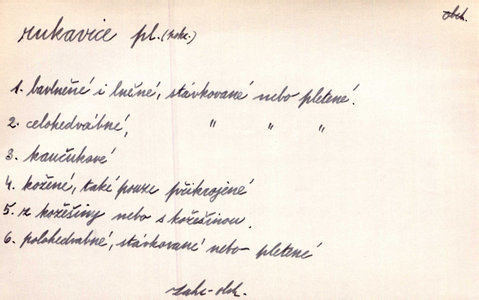 obch.
rukavice pl. (hotz.)
1. bavlněné i lněné, stávkované nebo pletené.
2. celohedvábné, " " "
3. kaučukové
4. kožené, také pouze přikrojené
5. z kožešiny nebo s kožešinou.
6. polohedvabné, stávkované nebo pletené
Zahr-obch.